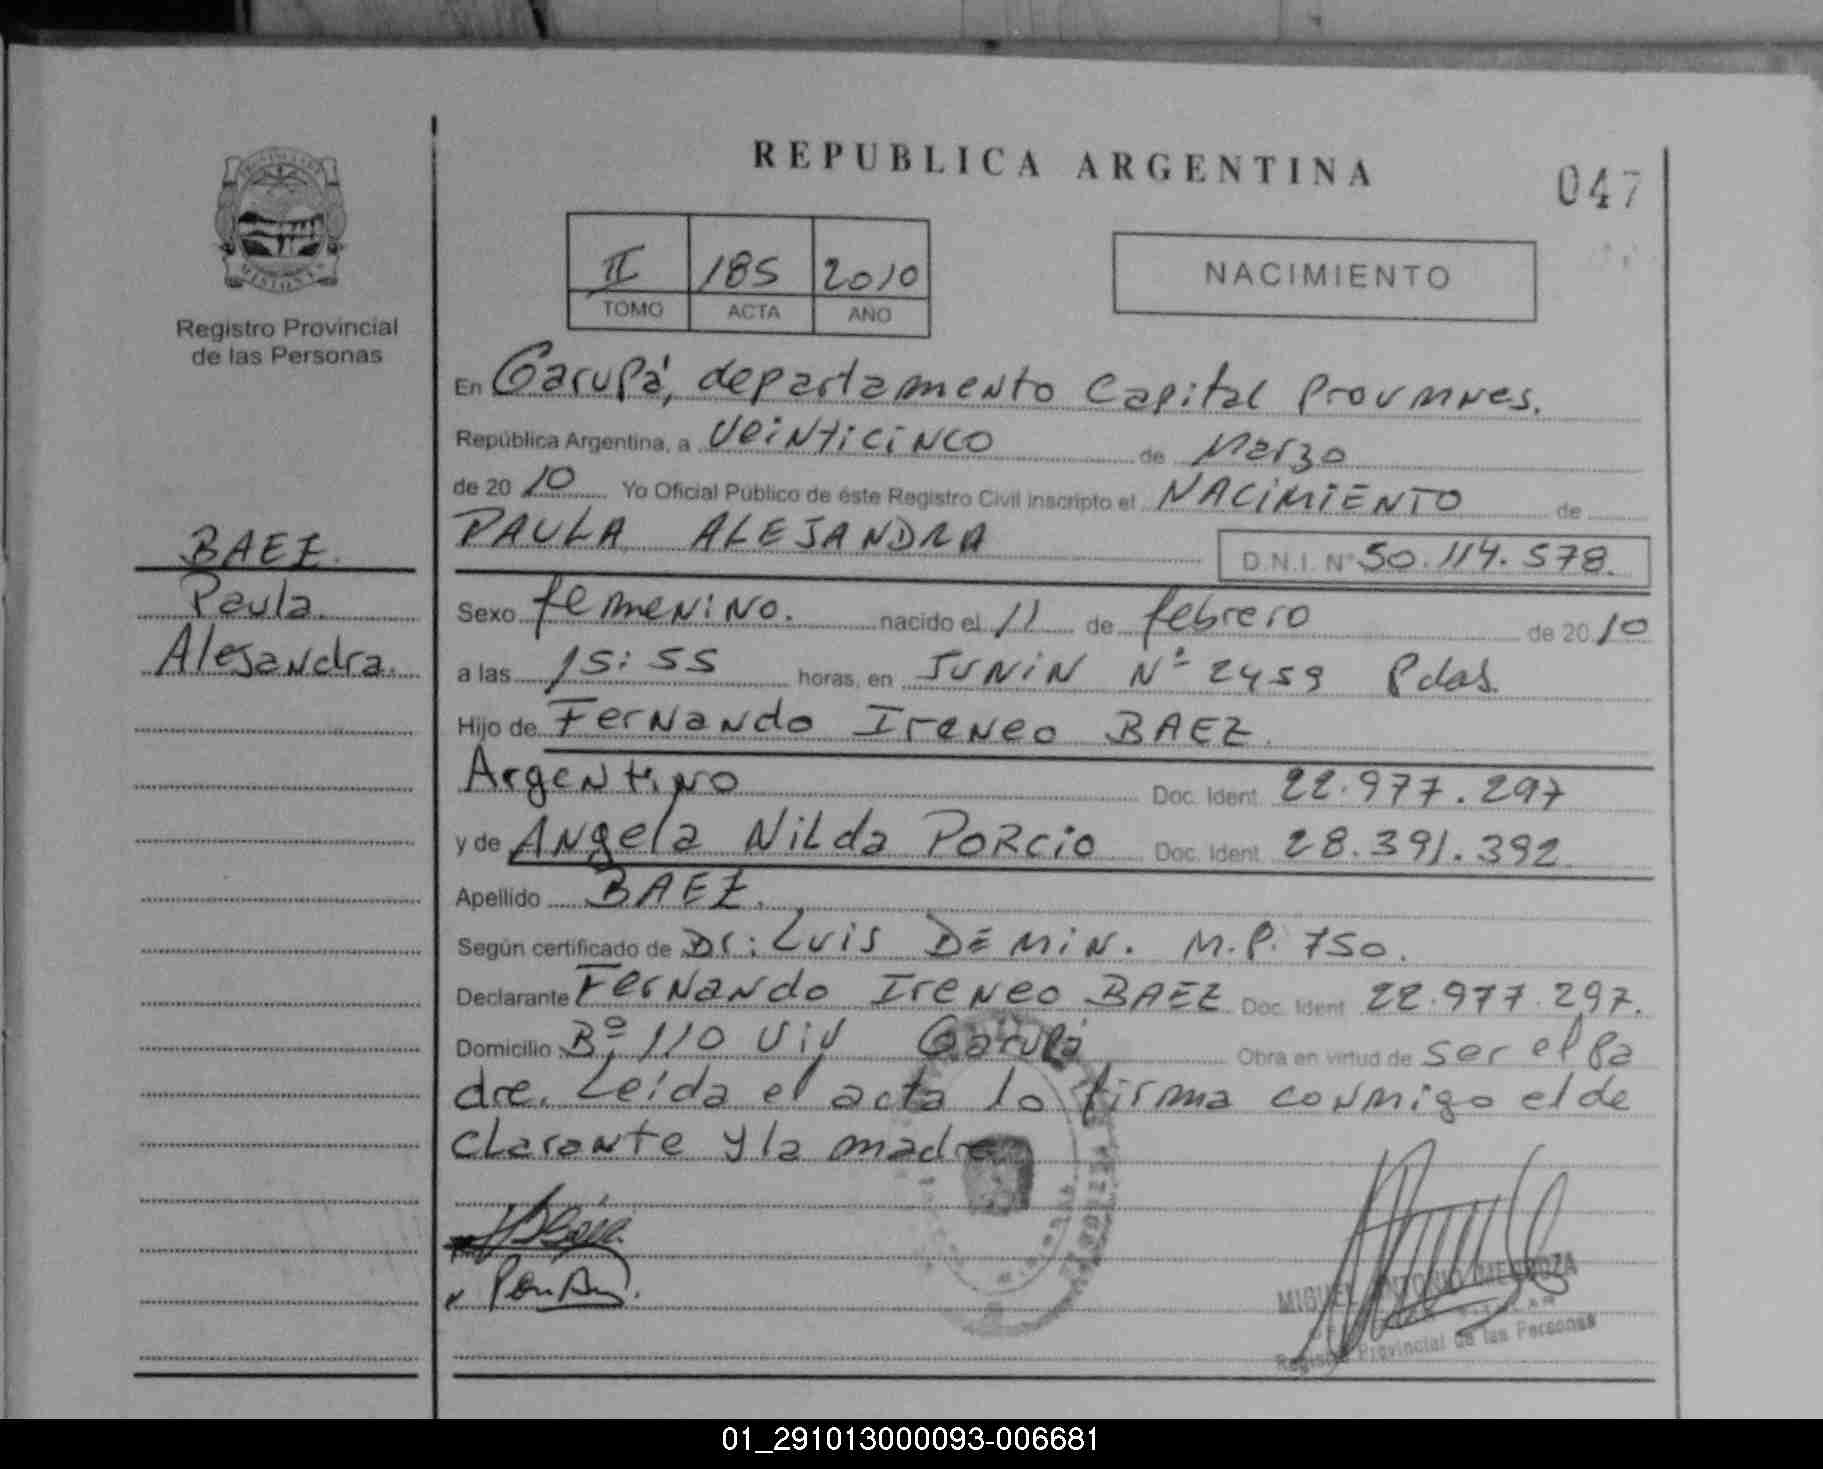 REPUBLICA ARGENTINA
047
II 185 2010
TOMO ACTA AÑO
NACIMIENTO
MISIONES
Registro Provincial
de las Personas
BAEZ.
Paula
Alejandra.
En Garupá, departamento Capital Prov Mnes.
República Argentina, a veinticinco de Marzo
de 2010 Yo Oficial Público de éste Registro Civil inscripto el NACIMIENTO de
PAULA ALEJANDRA D.N.I. Nº 50.114.578.
Sexo femenino. nacido el 11 de febrero de 2010
a las 15:55 horas, en JUNIN Nº 2459 Pdas.
Hijo de Fernando Ireneo BAEZ.
Argentino Doc. Ident. 22.977.297
y de Angela Nilda PORCIO Doc. Ident. 28.391.392
Apellido BAEZ.
Según certificado de Dr: Luis DEMIN. M.P. 750.
Declarante Fernando Ireneo BAEZ Doc. Ident. 22.977.297.
Domicilio Bº 110 Viv Garupá Obra en virtud de ser el Pa
dre. Leída el acta lo firma conmigo el de
clarante y la madre
MIGUEL ANTONIO MENDOZA
Registro Provincial de las Personas
01_291013000093-006681